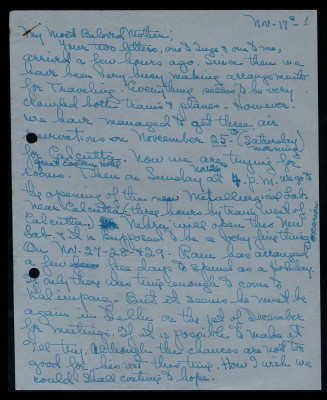 Nov- 17th 1
My Most Beloved Mother;
Your two letters, one to Inge & one to me,
arrived a few hours ago. Since then we
have been very busy making arrangements
for traveling. Everything seems to be very
crowded both trains & planes. However
we have managed to get three air
reservations on November 25- (Saturday)
morning
for Calcutta. Now we are trying for
great eastern hotel
rooms. Then on Sunday at 4 P.M. we go to
Nov 26
the opening of this new Metallurgical Lab.
near Calcutta (three hours by train) west of
Calcutta. Nehru will open this new
Lab. & it is supposed to be a very fine thing.
occasion
On Nov- 27-28-&29- Ram has arranged
a few free days to spend as a Holiday.
If only there was time enough to come to
Kalimpong- But it seems he must be
again in Delhi on the 1st of December
for meetings. If it is possible to make it
I'll try, although the chances are not too
good for his visit this time. How I wish we
could! Shall continue to hope.